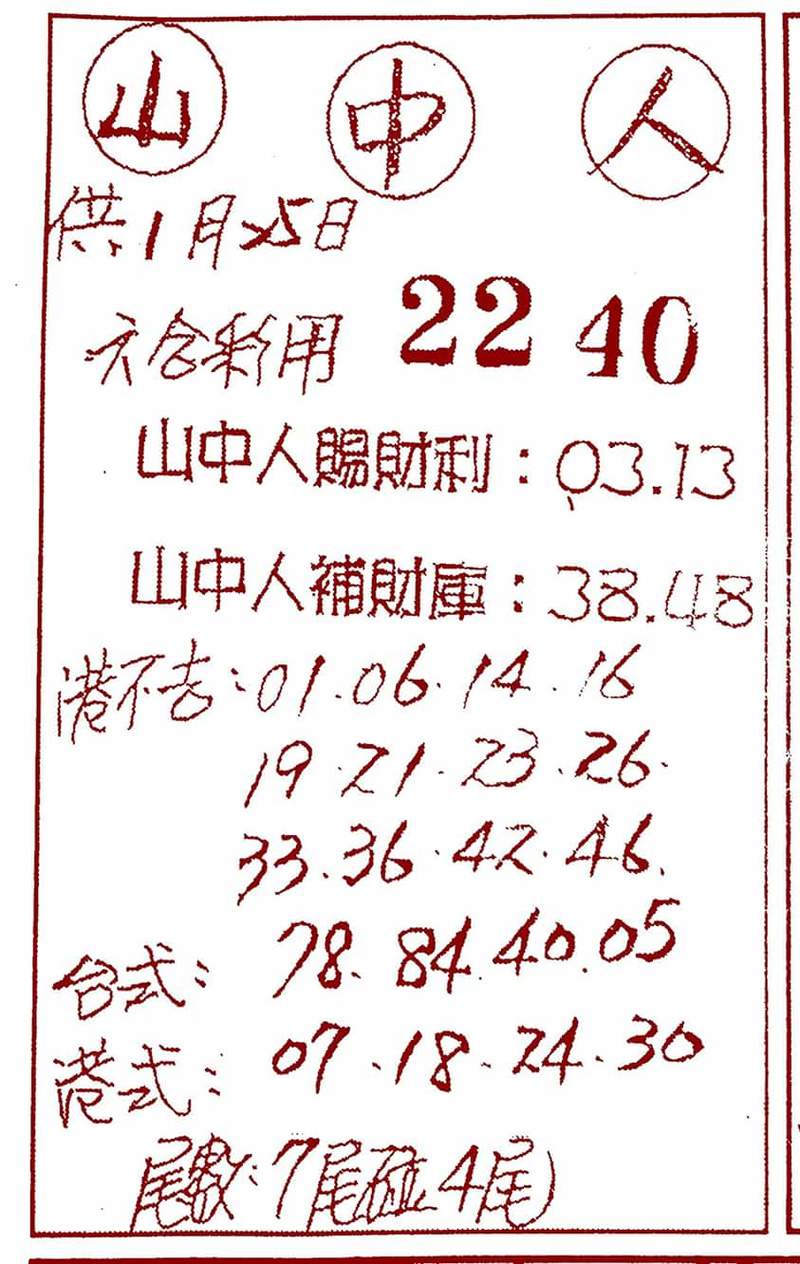 山 中 人
供1月25日
六合彩用 22 40
山中人賜財利：03.13
山中人補財庫：38.48
港不吉：01.06.14.16
19.21.23.26.
33.36.42.46.
台式：78.84.40.05
港式：07.18.24.30
尾數：7尾碰4尾)